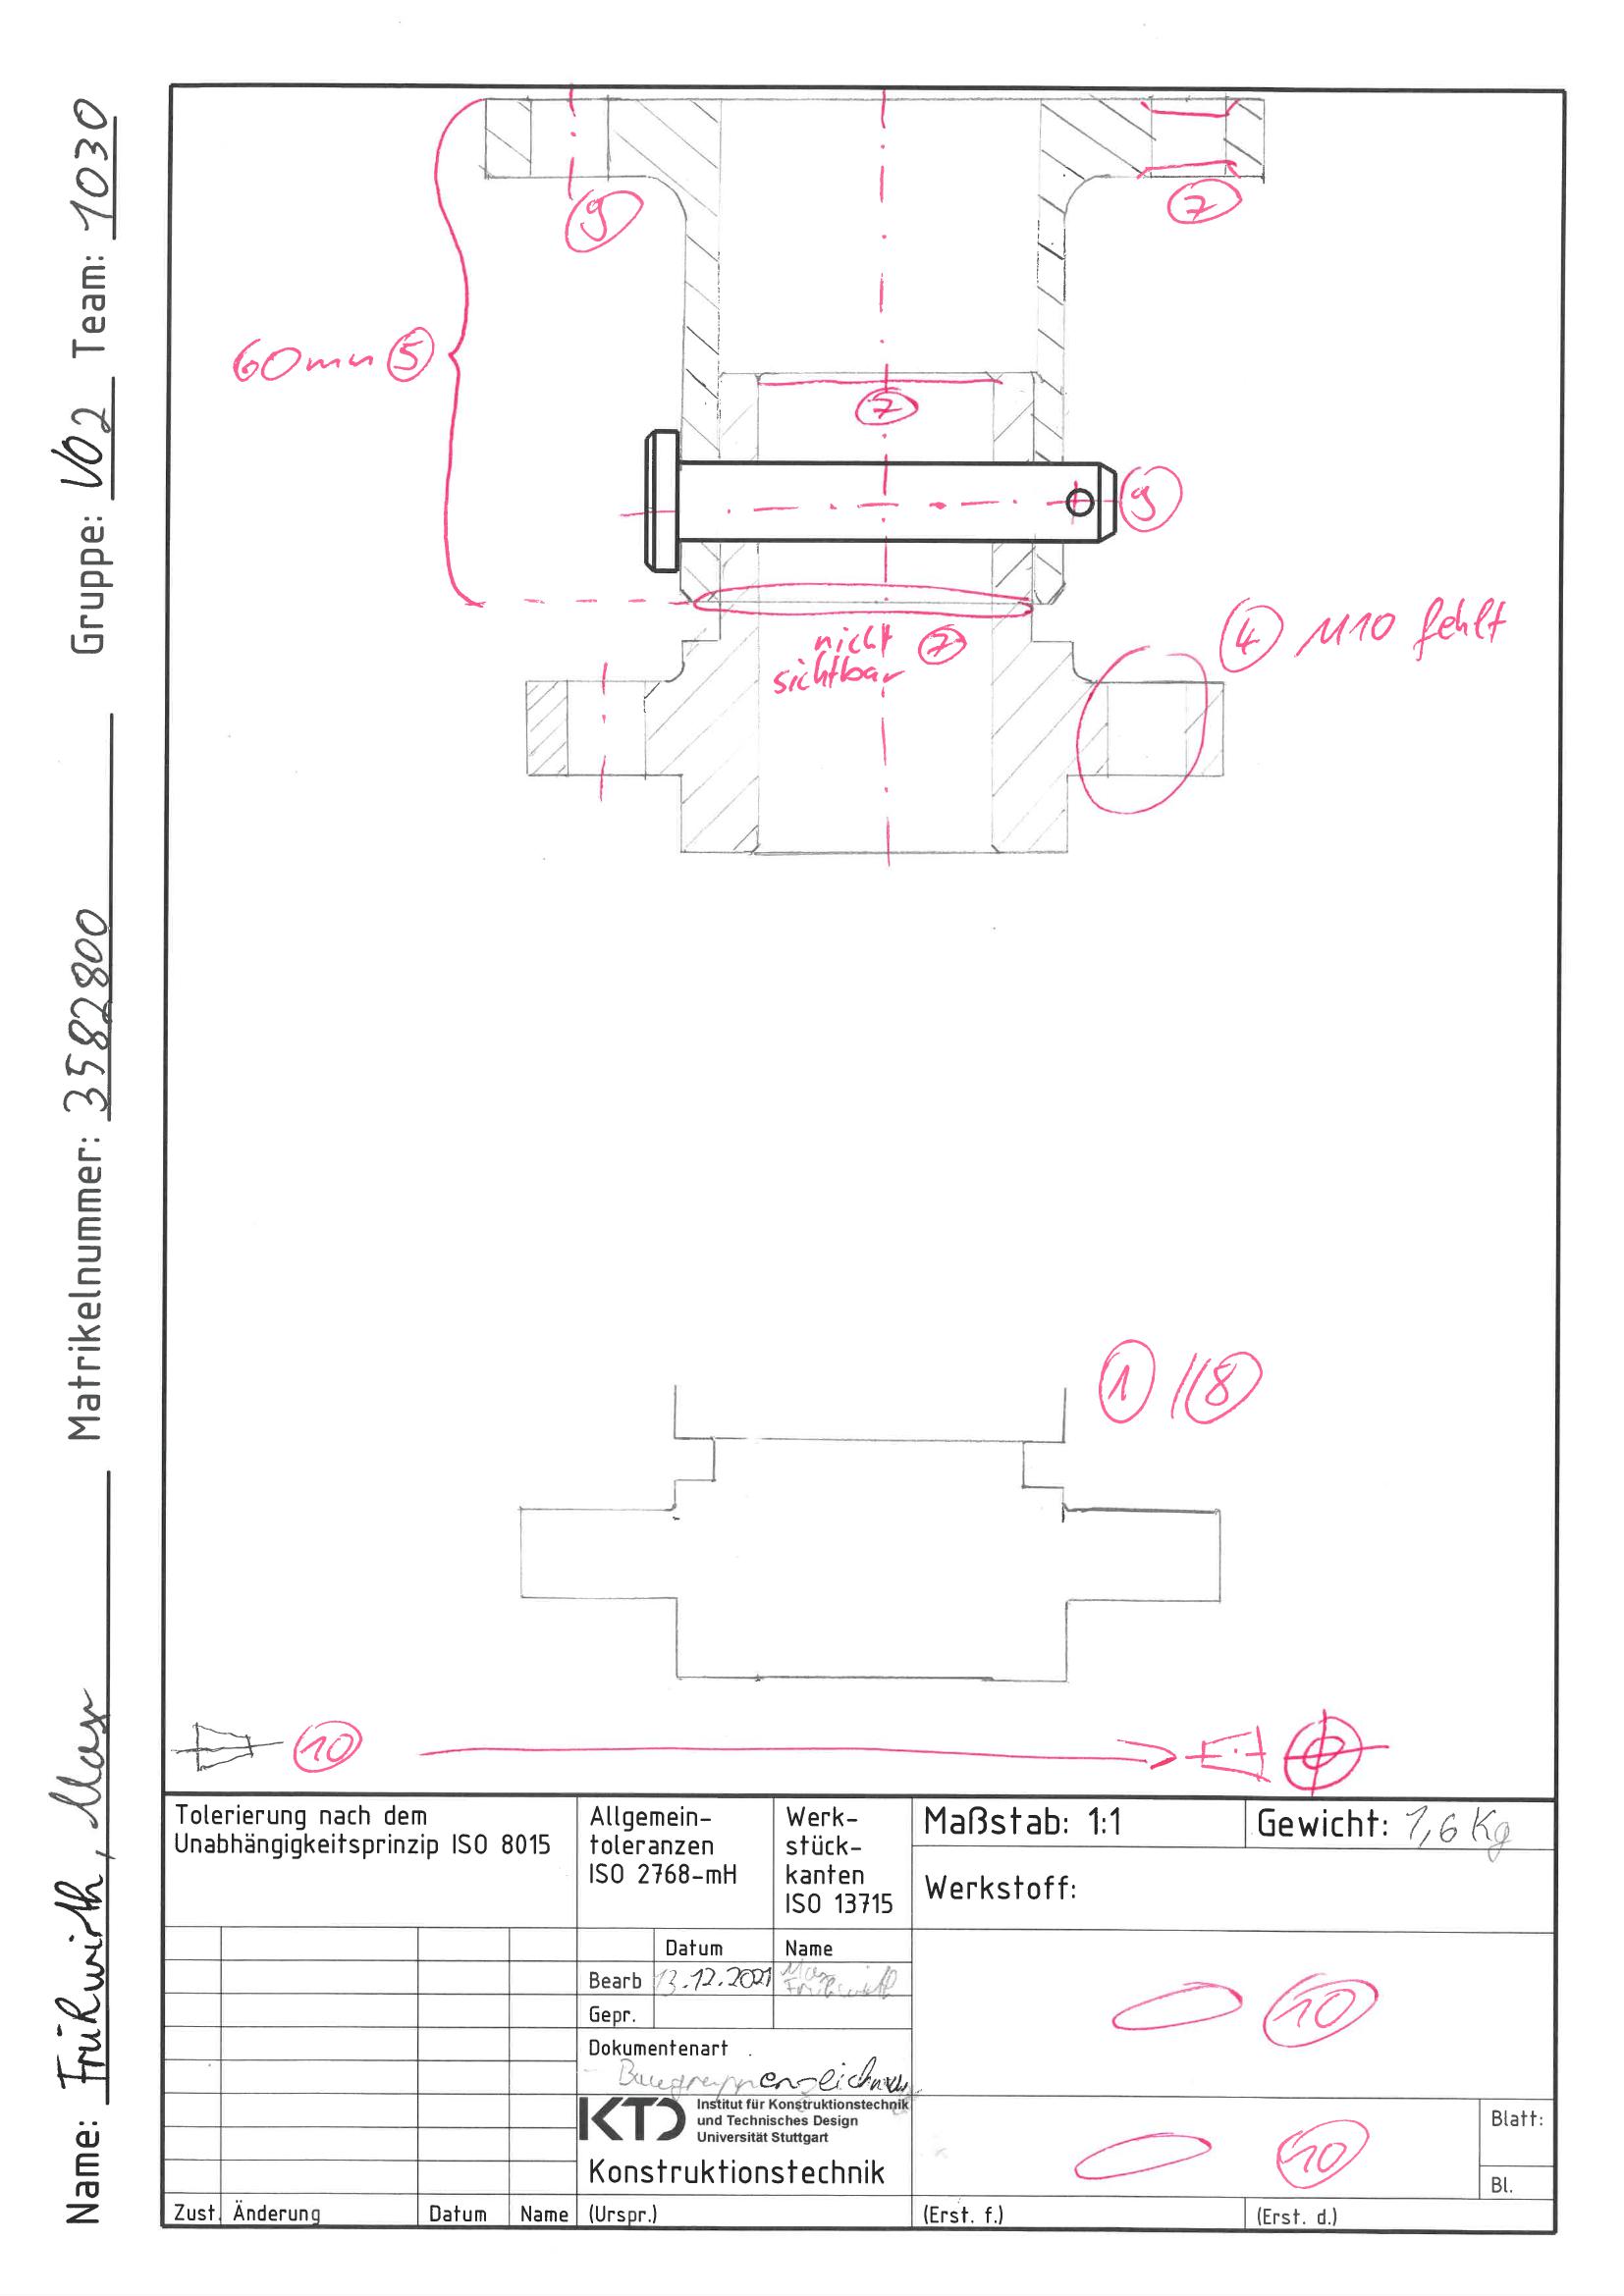 Name: Frühwirth, Max Matrikelnummer: 3582800 Gruppe: V02 Team: 1030
9
7
60mm 5
7
9
nicht 7
sichtbar
4 M10 fehlt
1 // 8
10
Tolerierung nach dem
Unabhängigkeitsprinzip ISO 8015
Allgemein-
toleranzen
ISO 2768-mH
Werk-
stück-
kanten
ISO 13715
Maßstab: 1:1
Gewicht: 1,6 Kg
Werkstoff:
Datum Name
Bearb 13.12.2021 Max
Frühwirth
Gepr.
10
Dokumentenart
Baugruppenzeichnung
KTD Institut für Konstruktionstechnik
und Technisches Design
Universität Stuttgart
Konstruktionstechnik
10
Blatt:
Bl.
Zust. Änderung Datum Name (Urspr.) (Erst. f.) (Erst. d.)